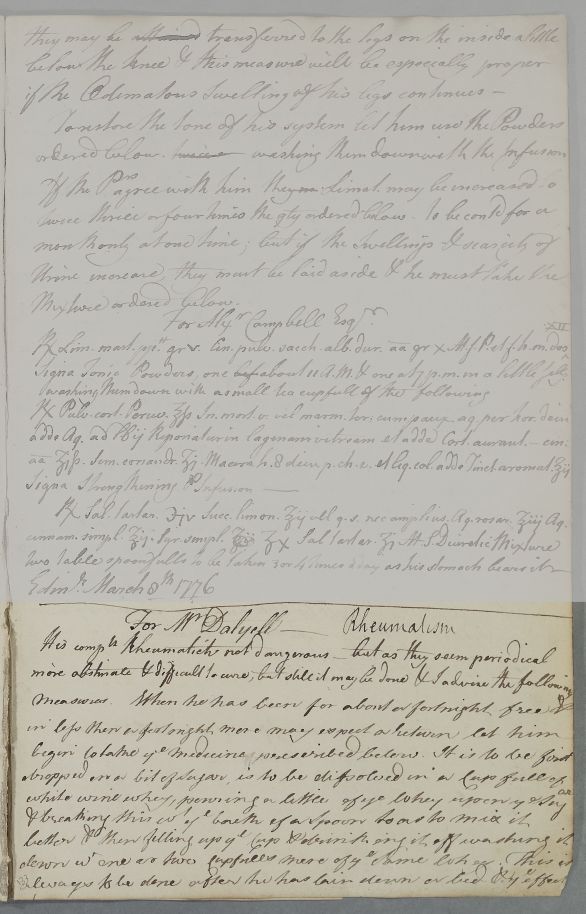 they may be transferred to the legs on the inside a little
below the knee & this measure will be especially proper
if the Œdematous Swelling of his legs continues —
To restore the tone of his system let him use the Powders
ordered below. twice washing them down with the Infusion
If the Prs agree with him the Limat. may be increased to
twice thrice or four times the qty ordered below. to be contd for a
month only at one time; but if the Swellings & scarcity of
Urine increase, they must be laid aside & he must take the
Mixture ordered below.
For Alexr Campbell Esqr.
℞ Lim. mart. ppt. gr v. Cin. pulv. sacch. alb. dur. aa gr x M. f. P. et f. h. m. dos XII
Signa Tonic Powders, one about 11 A.M. & one at 7 p.m. in a little
washing them down with a small tea cupfull of the following
℞ Pulv. cort. Peruv. ℥ſs In. mort. v. vel marm. ter. cum paux. aq. per hor. dein
adde Aq. ad lbij Reponatur in lagenam vitream et adde Cort. aurant. — cin.
aa ʒiſs. Sem. coriandr. ʒj. Macera p. 8 dein p. ch. e. et liq. col. adde Tinct. aromat. ℥ij
Signa Strengthening Infusion —
℞ Sal. tartar. ʒiv Succ. limon. ℥ij vel q. s. nec amplius. Aq. rosar. ℥iij Aq.
cinnam. simpl. ℥ij. Syr. simpl. Sal tartar. M. S. Diuretic Mixture
two table spoonfulls to be taken 3 or 4 times a day as his stomach bears it
Edinr. March 8th 1776
For Mr Dalyell — Rheumatism
His complts Rheumatick not dangerous — but as they seem periodical
more obstinate & difficult to cure; but still it may be done & I advise the following
measures. When he has been for about a fortnight free &
in less then a fortnight more may expect a return let him
begin to take ye medicine prescribed below. It is to be first
dropped on a bit of sugar, is to be dissolved in a Cup full of
white wine whey pouring a little of ye whey upon ye
& breaking this wt ye bowl of a spoon so as to mix it
better & then filling up ye Cup & drinking it off washing it
down wt one or two cupfulls more of ye same whey. This is
always to be done after he has lain down in bed & ye effect